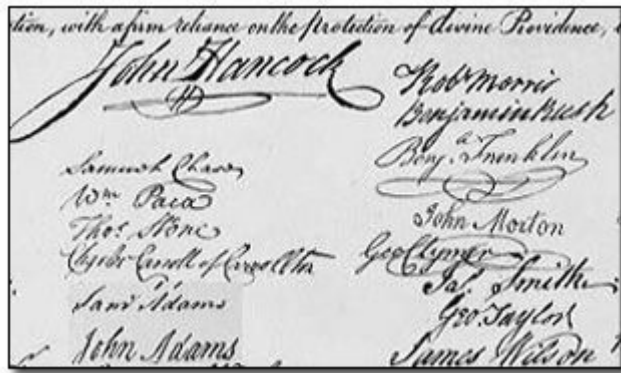 tion, with a firm reliance on the protection of divine Providence,
John Hancock
Samuel Chase
Wm Paca
Thos Stone
Charles Carroll of Carrollton
Saml Adams
John Adams
Robt Morris
Benjamin Rush
Benja Franklin
John Morton
Geo Clymer
Jas. Smith
Geo. Taylor
James Wilson